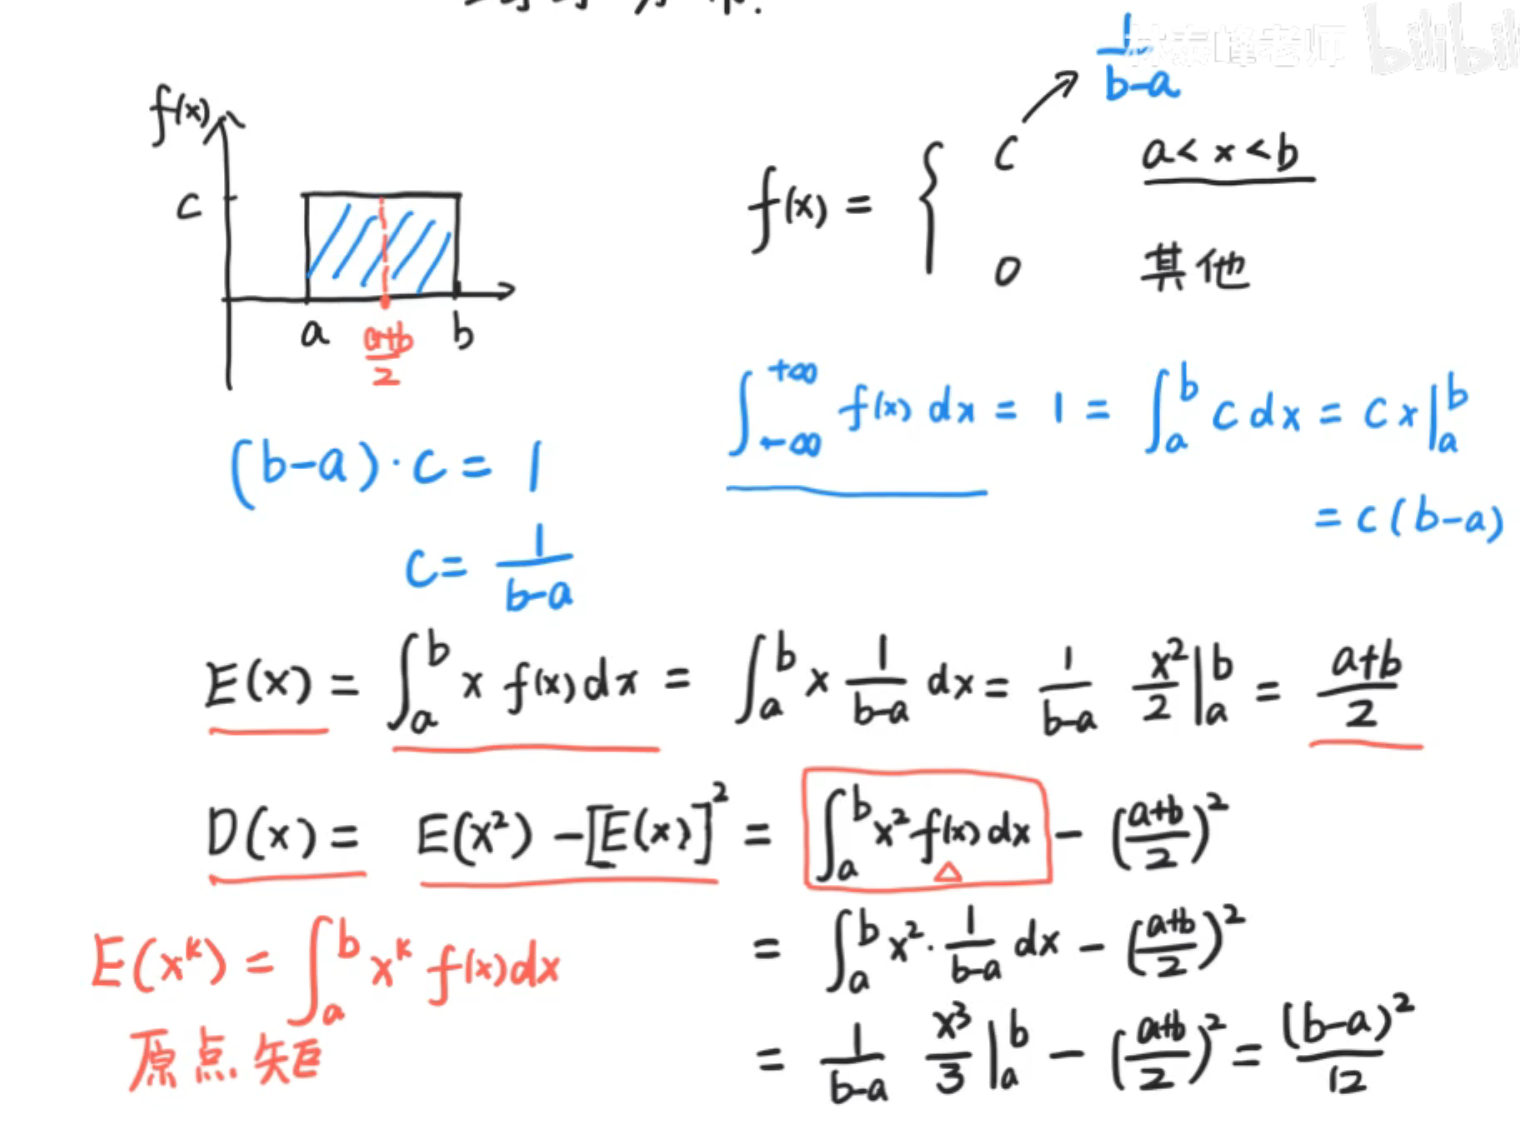 林泰峰老师 bilibili
f(x)
c
a  (a+b)/2  b
f(x) = { c → 1/(b-a)  a < x < b
0  其他
(b-a)·c = 1
c = 1/(b-a)
∫_{-∞}^{+∞} f(x) dx = 1 = ∫_a^b c dx = c x |_a^b
= c (b-a)
E(x) = ∫_a^b x f(x) dx = ∫_a^b x 1/(b-a) dx = 1/(b-a) x²/2 |_a^b = (a+b)/2
D(x) = E(x²) - [E(x)]² = ∫_a^b x² f(x) dx - ((a+b)/2)²
= ∫_a^b x² · 1/(b-a) dx - ((a+b)/2)²
= 1/(b-a) x³/3 |_a^b - ((a+b)/2)² = (b-a)²/12
E(x^k) = ∫_a^b x^k f(x) dx
原点矩